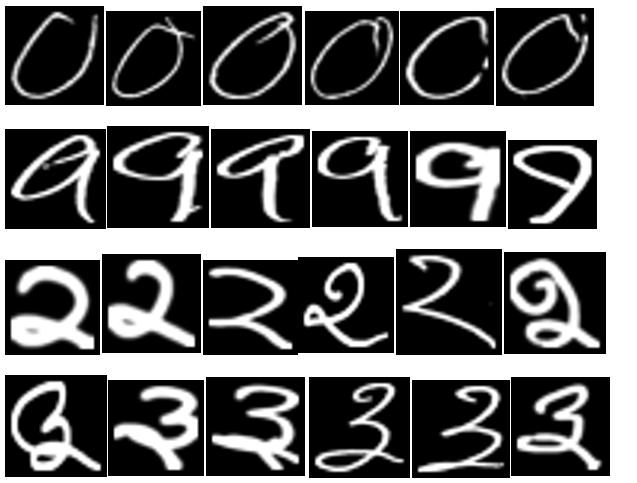 0 0 0 0 0 0
9 9 9 9 9 9
2 2 2 2 2 2
3 3 3 3 3 3